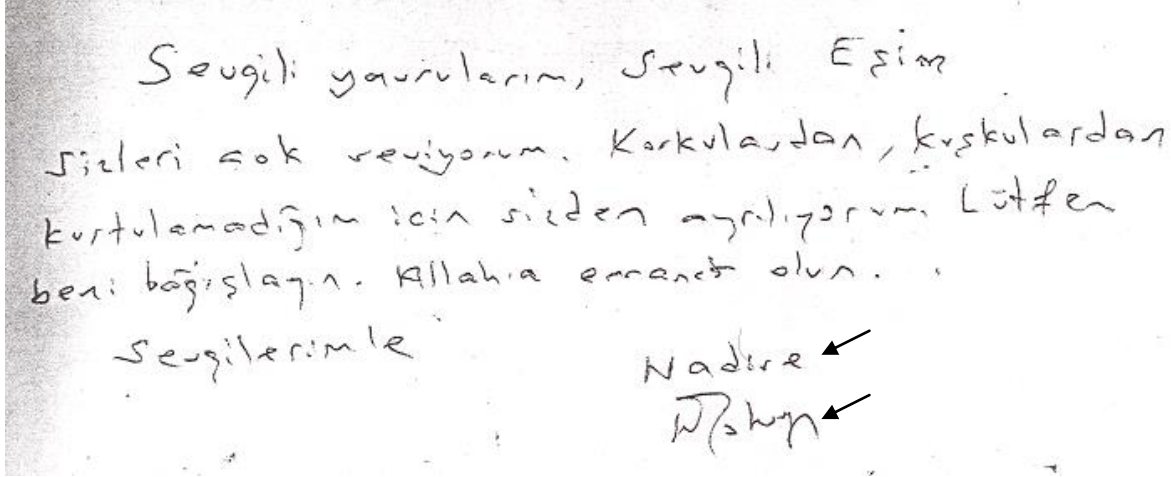 Sevgili yavrularım, Sevgili Eşim
sizleri çok seviyorum. Korkulardan, kuşkulardan
kurtulamadiğim için sizden ayrılıyorum. Lütfen
beni bağışlayın. Allah'a emanet olun.
Sevgilerimle
Nadire